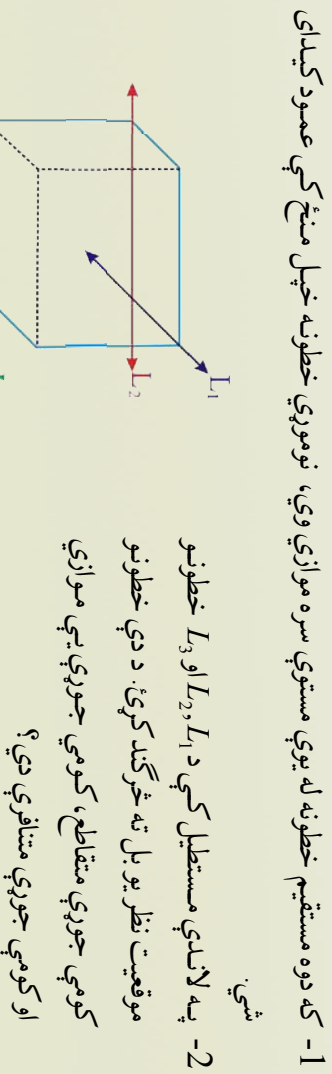 1- که دوه مستقیم خطونه له یوې مستوي سره موازي وي، نوموړي خطونه خپل منځ کې عمود کېدای
شي.
2- په لاندې مستطیل کې د L₁ ,L₂ او L₃ خطونو
موقعیت نظر یو بل ته څرګند کړئ. د دې خطونو
کومې جوړې متقاطع، کومې جوړې یې موازي
او کومې جوړې متنافرې دي؟
L₁
L₂